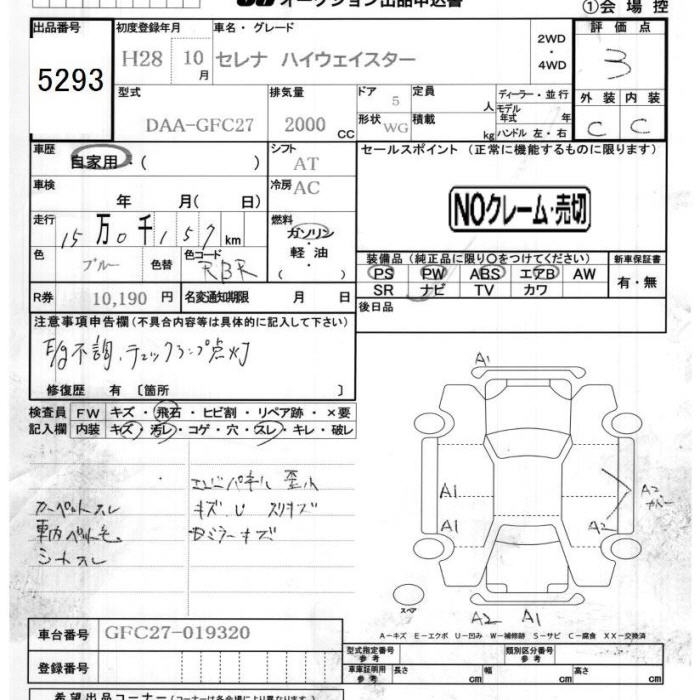 オークション出品申込書
①会場控
出品番号 初度登録年月 車名・グレード 評価点
5293 H28 10月 セレナ ハイウェイスター 2WD・4WD 3
型式 排気量 ドア 定員 ディーラー・並行 外装 内装
DAA-GFC27 2000 CC 5 人 モデル年式 年 C C
形状 WG 積載 kg ハンドル 左・右
車歴 自家用・( ) シフト AT セールスポイント (正常に機能するものに限ります)
車検 年 月( 日) 冷房 AC
NOクレーム・売切
走行 15万0千157km 燃料 ガソリン・軽油・( )
色 ブルー 色替 色コード RBR
装備品 (純正品に限り○をつけてください) 新車保証書
PS PW ABS エアB AW 有・無
SR ナビ TV カワ
R券 10,190円 名変通知期限 月 日
後日品
注意事項申告欄(不具合内容等は具体的に記入して下さい)
E/g不調、チェックランプ点灯
修復歴 有 〔箇所 〕
検査員 FW キズ・飛石・ヒビ割・リペア跡・×要
記入欄 内装 キズ・汚レ・コゲ・穴・スレ・キレ・破レ
カーペットスレ
シートスレ
キズ、U スリキズ
ミラーキズ
A1
A1
A1
A2
A2
A2 A1
スペア
A-キズ E-エクボ U-凹み W-補修跡 S-サビ C-腐食 XX-交換済
車台番号 GFC27-019320
型式指定番号 参考 類別区分番号 参考
登録番号
車庫証明用 参考 長さ cm 幅 cm 高さ cm
希望出品コーナー(コーナーは各会場により異なります)